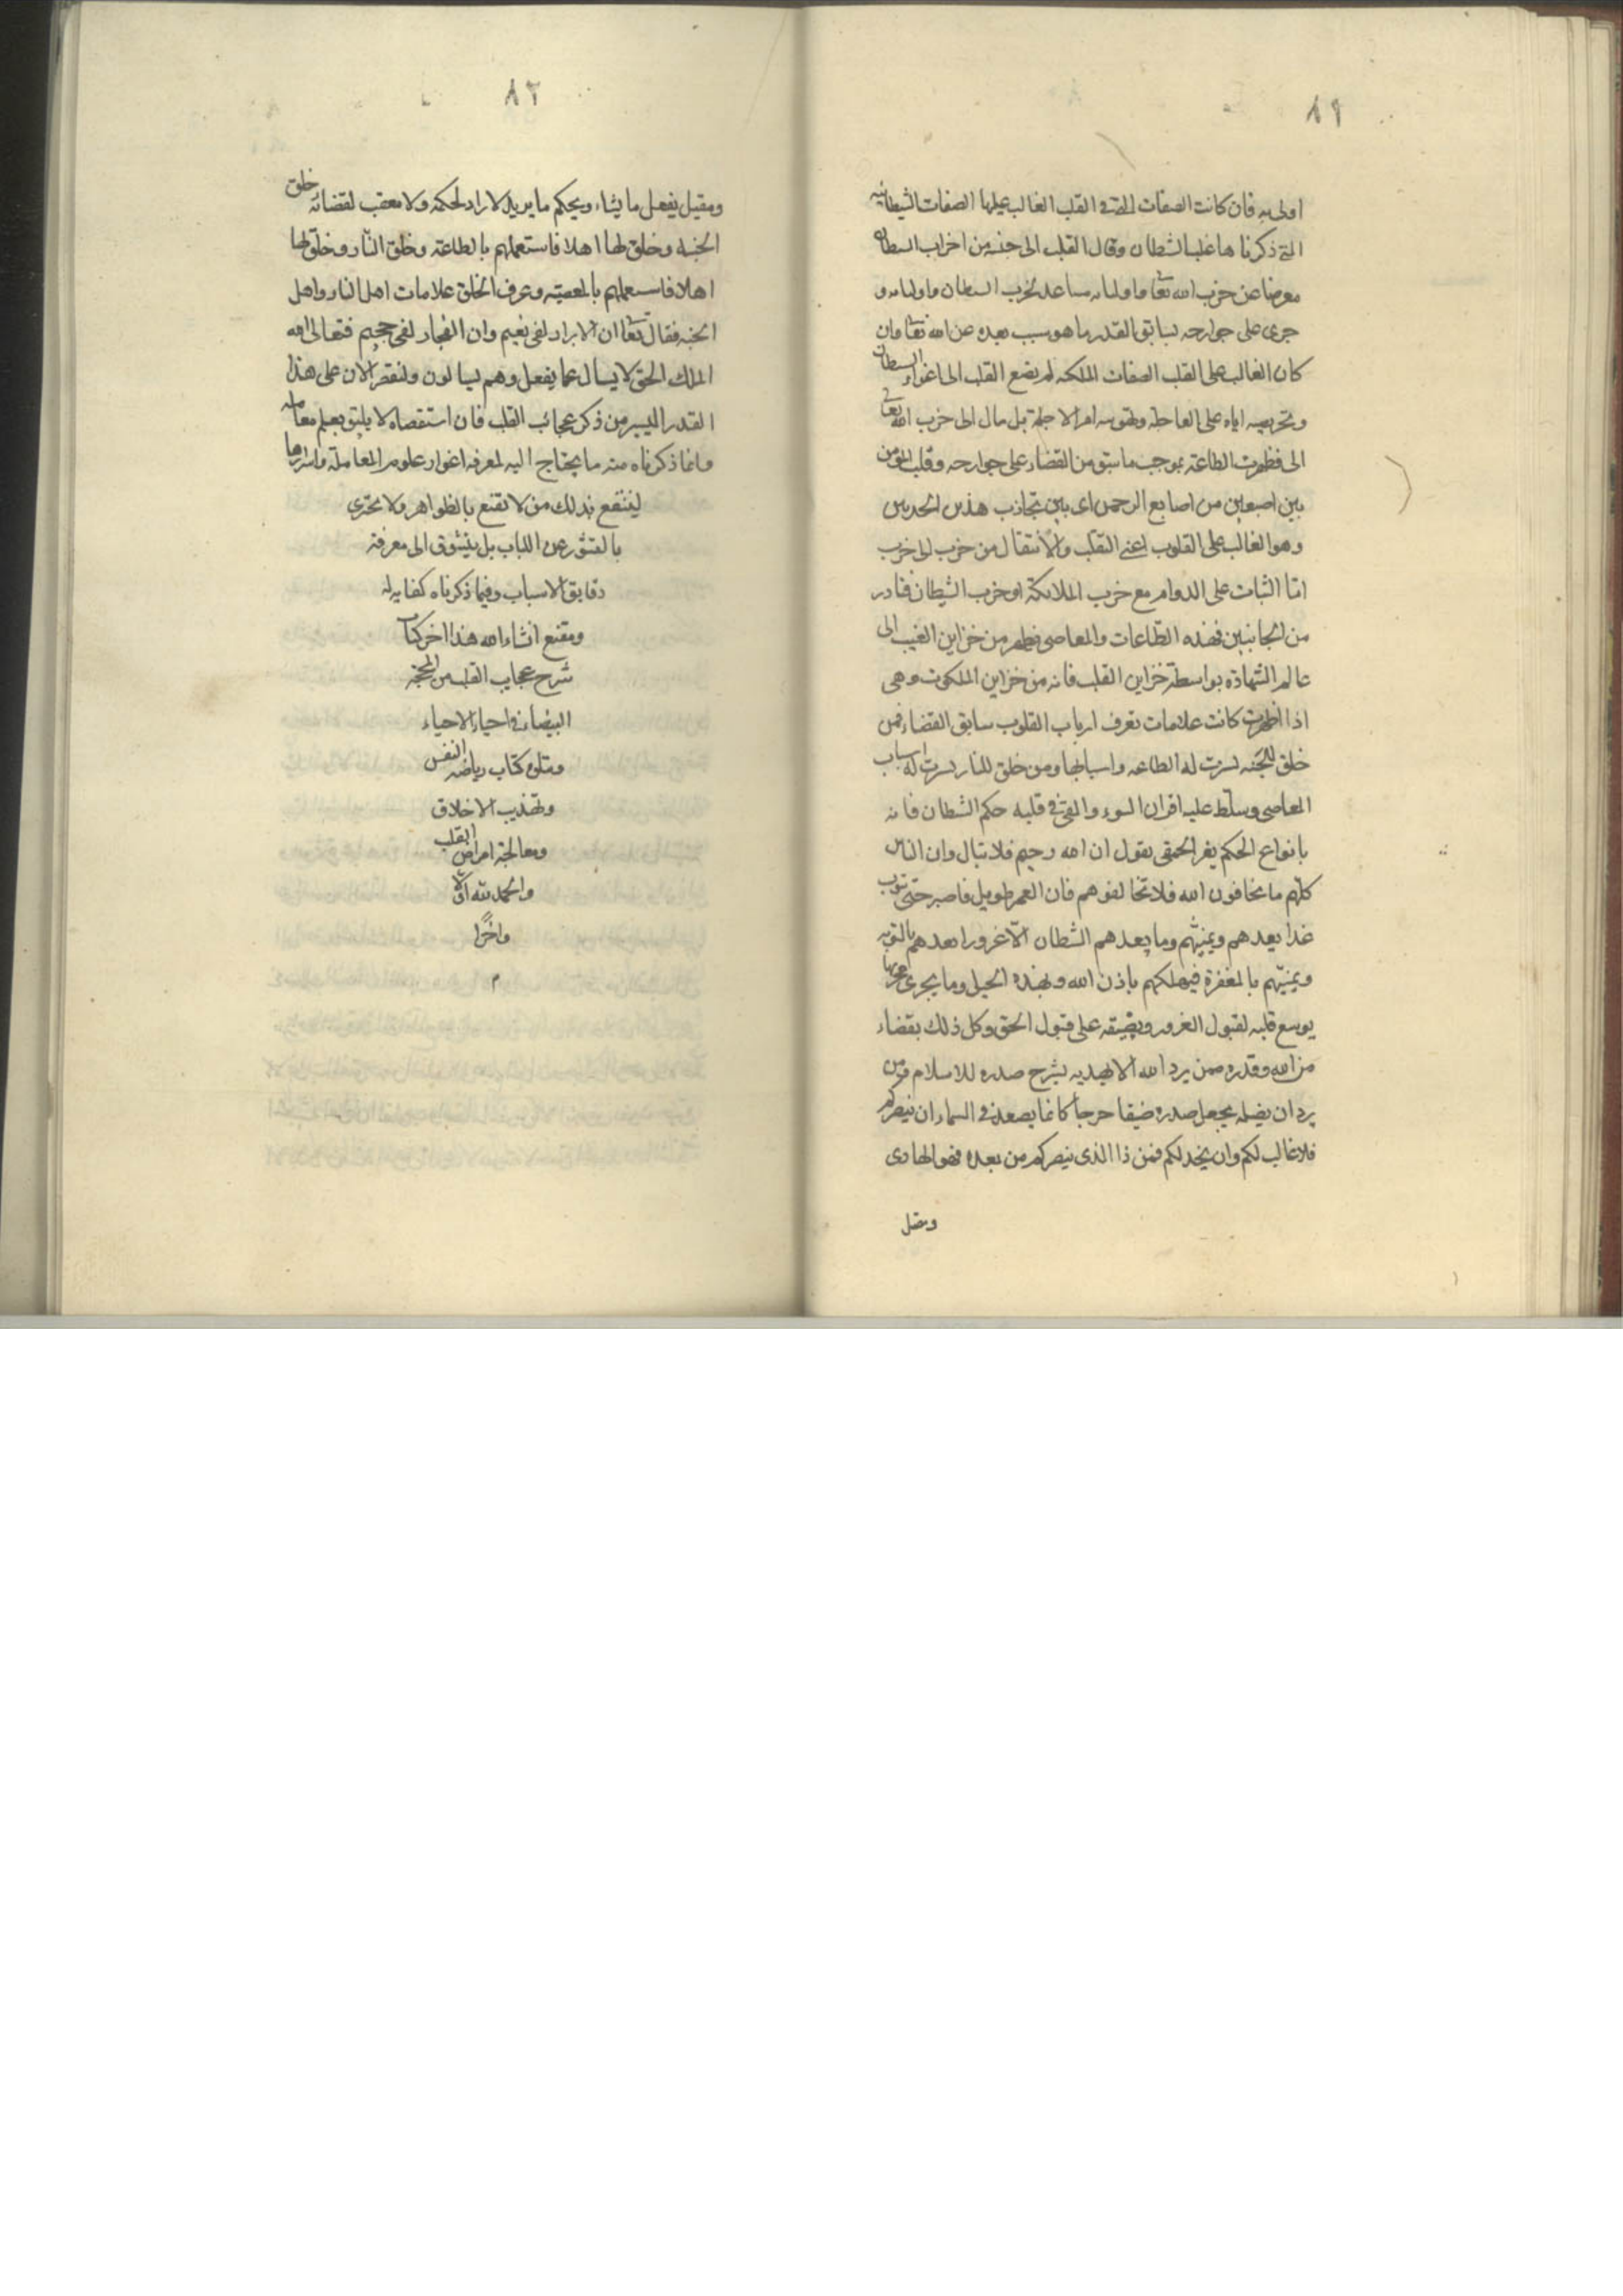 ٨١
اولى به فان كانت الصفات التي في القلب الغالب عليها الصفات الشيطانيه
التي ذكرناها غلب الشطان ومال القلب الى جنسه من احزاب الشطان
معرضا عن حزب الله تعا واوليائه مساعدا لحزب الشطان واوليائه و
جرى على جوارحه بسابق القدر ما هو سبب بعده عن الله تعا وان
كان الغالب على القلب الصفات الملكيه لم يصغ القلب الى اغواء الشطان
وتحريصه اياه على العاجله وتهوينه امر الاجلة بل مال الى حزب الله تعا
الى فظهرت الطاعة بموجب ما سبق من القضاء على جوارحه وقلب المؤمن
بين اصبعين من اصابع الرحمن اى بين تجاذب هذين الحزبين
وهو الغالب على القلوب اعنى التقلب والانتقال من حزب الى حزب
امّا الثبات على الدوام مع حزب الملائكة او حزب الشيطان فنادر
من الجانبين فهذه الطّاعات والمعاصى تظهر من خزاين الغيب الى
عالم الشهادة بواسطة خزاين القلب فانه من خزاين الملكوت وهى
اذا ظهرت كانت علامات تعرف ارباب القلوب سابق القضاء فمن
خلق للجنه يسرت له الطاعه واسبابها ومن خلق للنار يسرت له اسباب
المعاصى وسلّط عليه اقران السوء والقى فى قلبه حكم الشطان فانه
بانواع الحكم يغر الحمقى بقول ان الله رحيم فلا تبال وان الناس
كلّهم ما يخافون الله فلا تخالفوهم فان العمر طويل فاصبر حتى تتوب
غدا يعدهم ويمنيّهم وما يعدهم الشطان الّا غرورا يعدهم بالتوبه
ويمنيّهم بالمغفرة فيهلكهم باذن الله وبهذه الحيل وما يجرى مجراها
يوسع قلبه لقبول الغرور ويضيقه على قبول الحق وكل ذلك بقضاء
من الله وقدره فمن يرد الله ان يهديه يشرح صدره للاسلام ومن
يرد ان يضله يجعل صدره ضيقا حرجا كانما يصعد فى السماء ان ينصركم
فلا غالب لكم وان يخذلكم فمن ذا الذى ينصركم من بعده فهو الهادى
ومضل
٨٢
ومضل يفعل ما يشاء ويحكم ما يريد لا راد لحكمه ولا معقب لقضائه خلق
الجنه وخلق لها اهلا فاستعملهم بالطاعة وخلق النّار وخلق لها
اهلا فاستعملهم بالمعصيّه وعرف الخلق علامات اهل النار واهل
الجنه فقال تعا ان الابرار لفى نعيم وان الفجار لفى جحيم فتعالى الله
الملك الحق لا يسال عما يفعل وهم يسالون ولنقتصر الان على هذا
القدر اليسير من ذكر عجائب القلب فان استقصاه لا يليق بعلم معامله
وانما ذكرناه منه ما يحتاج اليه لمعرفه اغوار علوم المعاملة واسرارها
لينتفع بذلك من لا تقنع بالظواهر ولا يجتزى
بالقشر عن اللباب بل يتشوق الى معرفة
دقايق الاسباب وفيما ذكرناه كفايه له
ومقنع انشاء الله هذا اخر كتاب
شرح عجايب القلب من المحجة
البيضاء فى احياء الاحياء
ويتلوه كتاب رياضه النفس
وتهذيب الاخلاق
ومعالجة امراض القلب
والحمد لله اوّلا
واخرًا
م